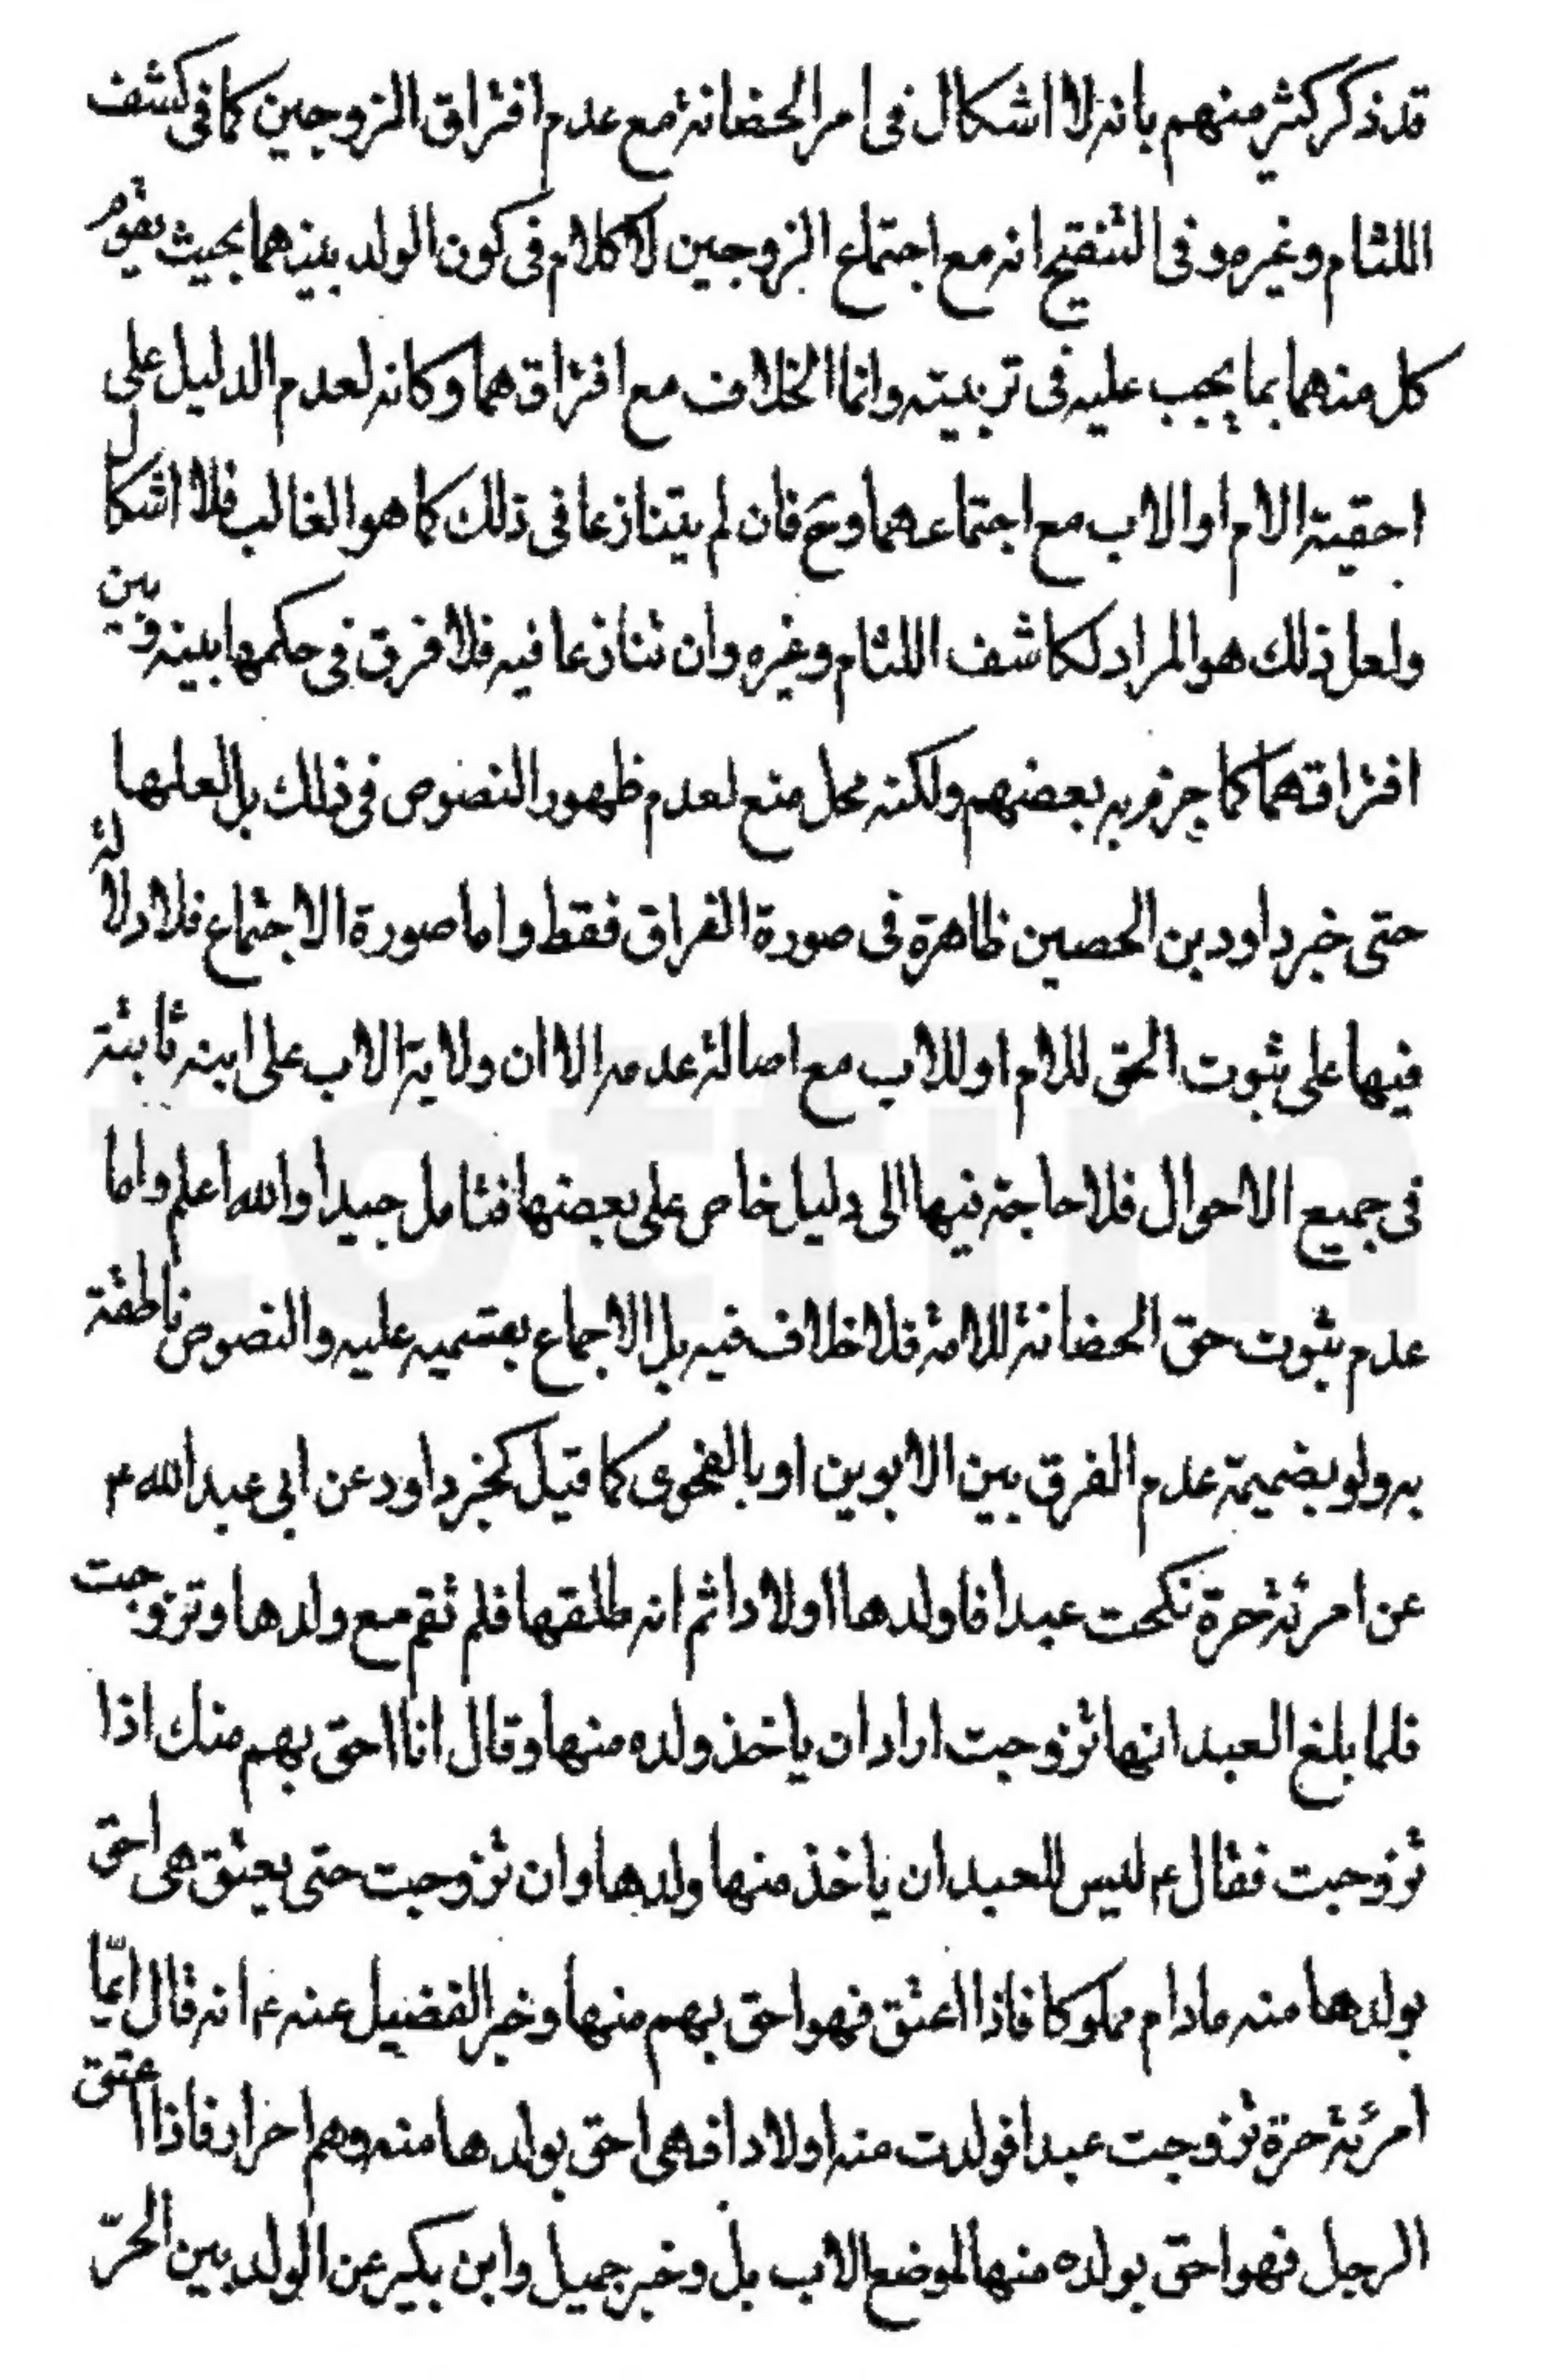 قد ذكر كثير منهم بانه لا اشكال فى امر الحضانة مع عدم افتراق الزوجين كما فى كشف
اللثام وغيره وفى التنقيح انه مع اجتماع الزوجين لا كلام فى كون الولد بينهما بحيث يقوم
كل منهما بما يجب عليه فى تربيته وانما الخلاف مع افتراقهما وكانه لعدم الدليل على
احقية الام او الاب مع اجتماعهما وح فان لم يتنازعا فى ذلك كما هو الغالب فلا اشكال
ولعل ذلك هو المراد لكاشف اللثام وغيره وان تنازعا فيه فلا فرق فى حكمها بينه وبين
افتراقهما كما جزم به بعضهم ولكنه محل منع لعدم ظهور النصوص فى ذلك بل لعلها
حتى خبر داود بن الحصين ظاهرة فى صورة الفراق فقط واما صورة الاجتماع فلا دلالة
فيها على ثبوت الحق للام او للاب مع اصالة عدمه الا ان ولاية الاب على ابنه ثابتة
فى جميع الاحوال فلا حاجة فيها الى دليل خاص على بعضها فتامل جيدا والله اعلم واما
عدم ثبوت حق الحضانة للامة فلا خلاف فيه بل الاجماع بقسميه عليه والنصوص ناطقة
به ولو بضميمة عدم الفرق بين الابوين او بالفحوى كما قيل كخبر داود عن ابى عبد الله ع
عن امرئة حرة نكحت عبدا فاولدها اولادا ثم انه طلقها فلم تقم مع ولدها وتزوجت
فلما بلغ العبد انها تزوجت اراد ان ياخذ ولده منها وقال انا احق بهم منك اذا
تزوجت فقال ع ليس للعبد ان ياخذ منها ولدها وان تزوجت حتى يعتق هى احق
بولدها منه مادام مملوكا فاذا اعتق فهو احق بهم منها وخبر الفضيل عنه ع انه قال ايّما
امرئة حرة تزوجت عبدا فولدت منه اولادا فهى احق بولدها منه وهم احرار فاذا اعتق
الرجل فهو احق بولده منها لموضع الاب بل وخبر جميل وابن بكير عن الولد بين الحرّ